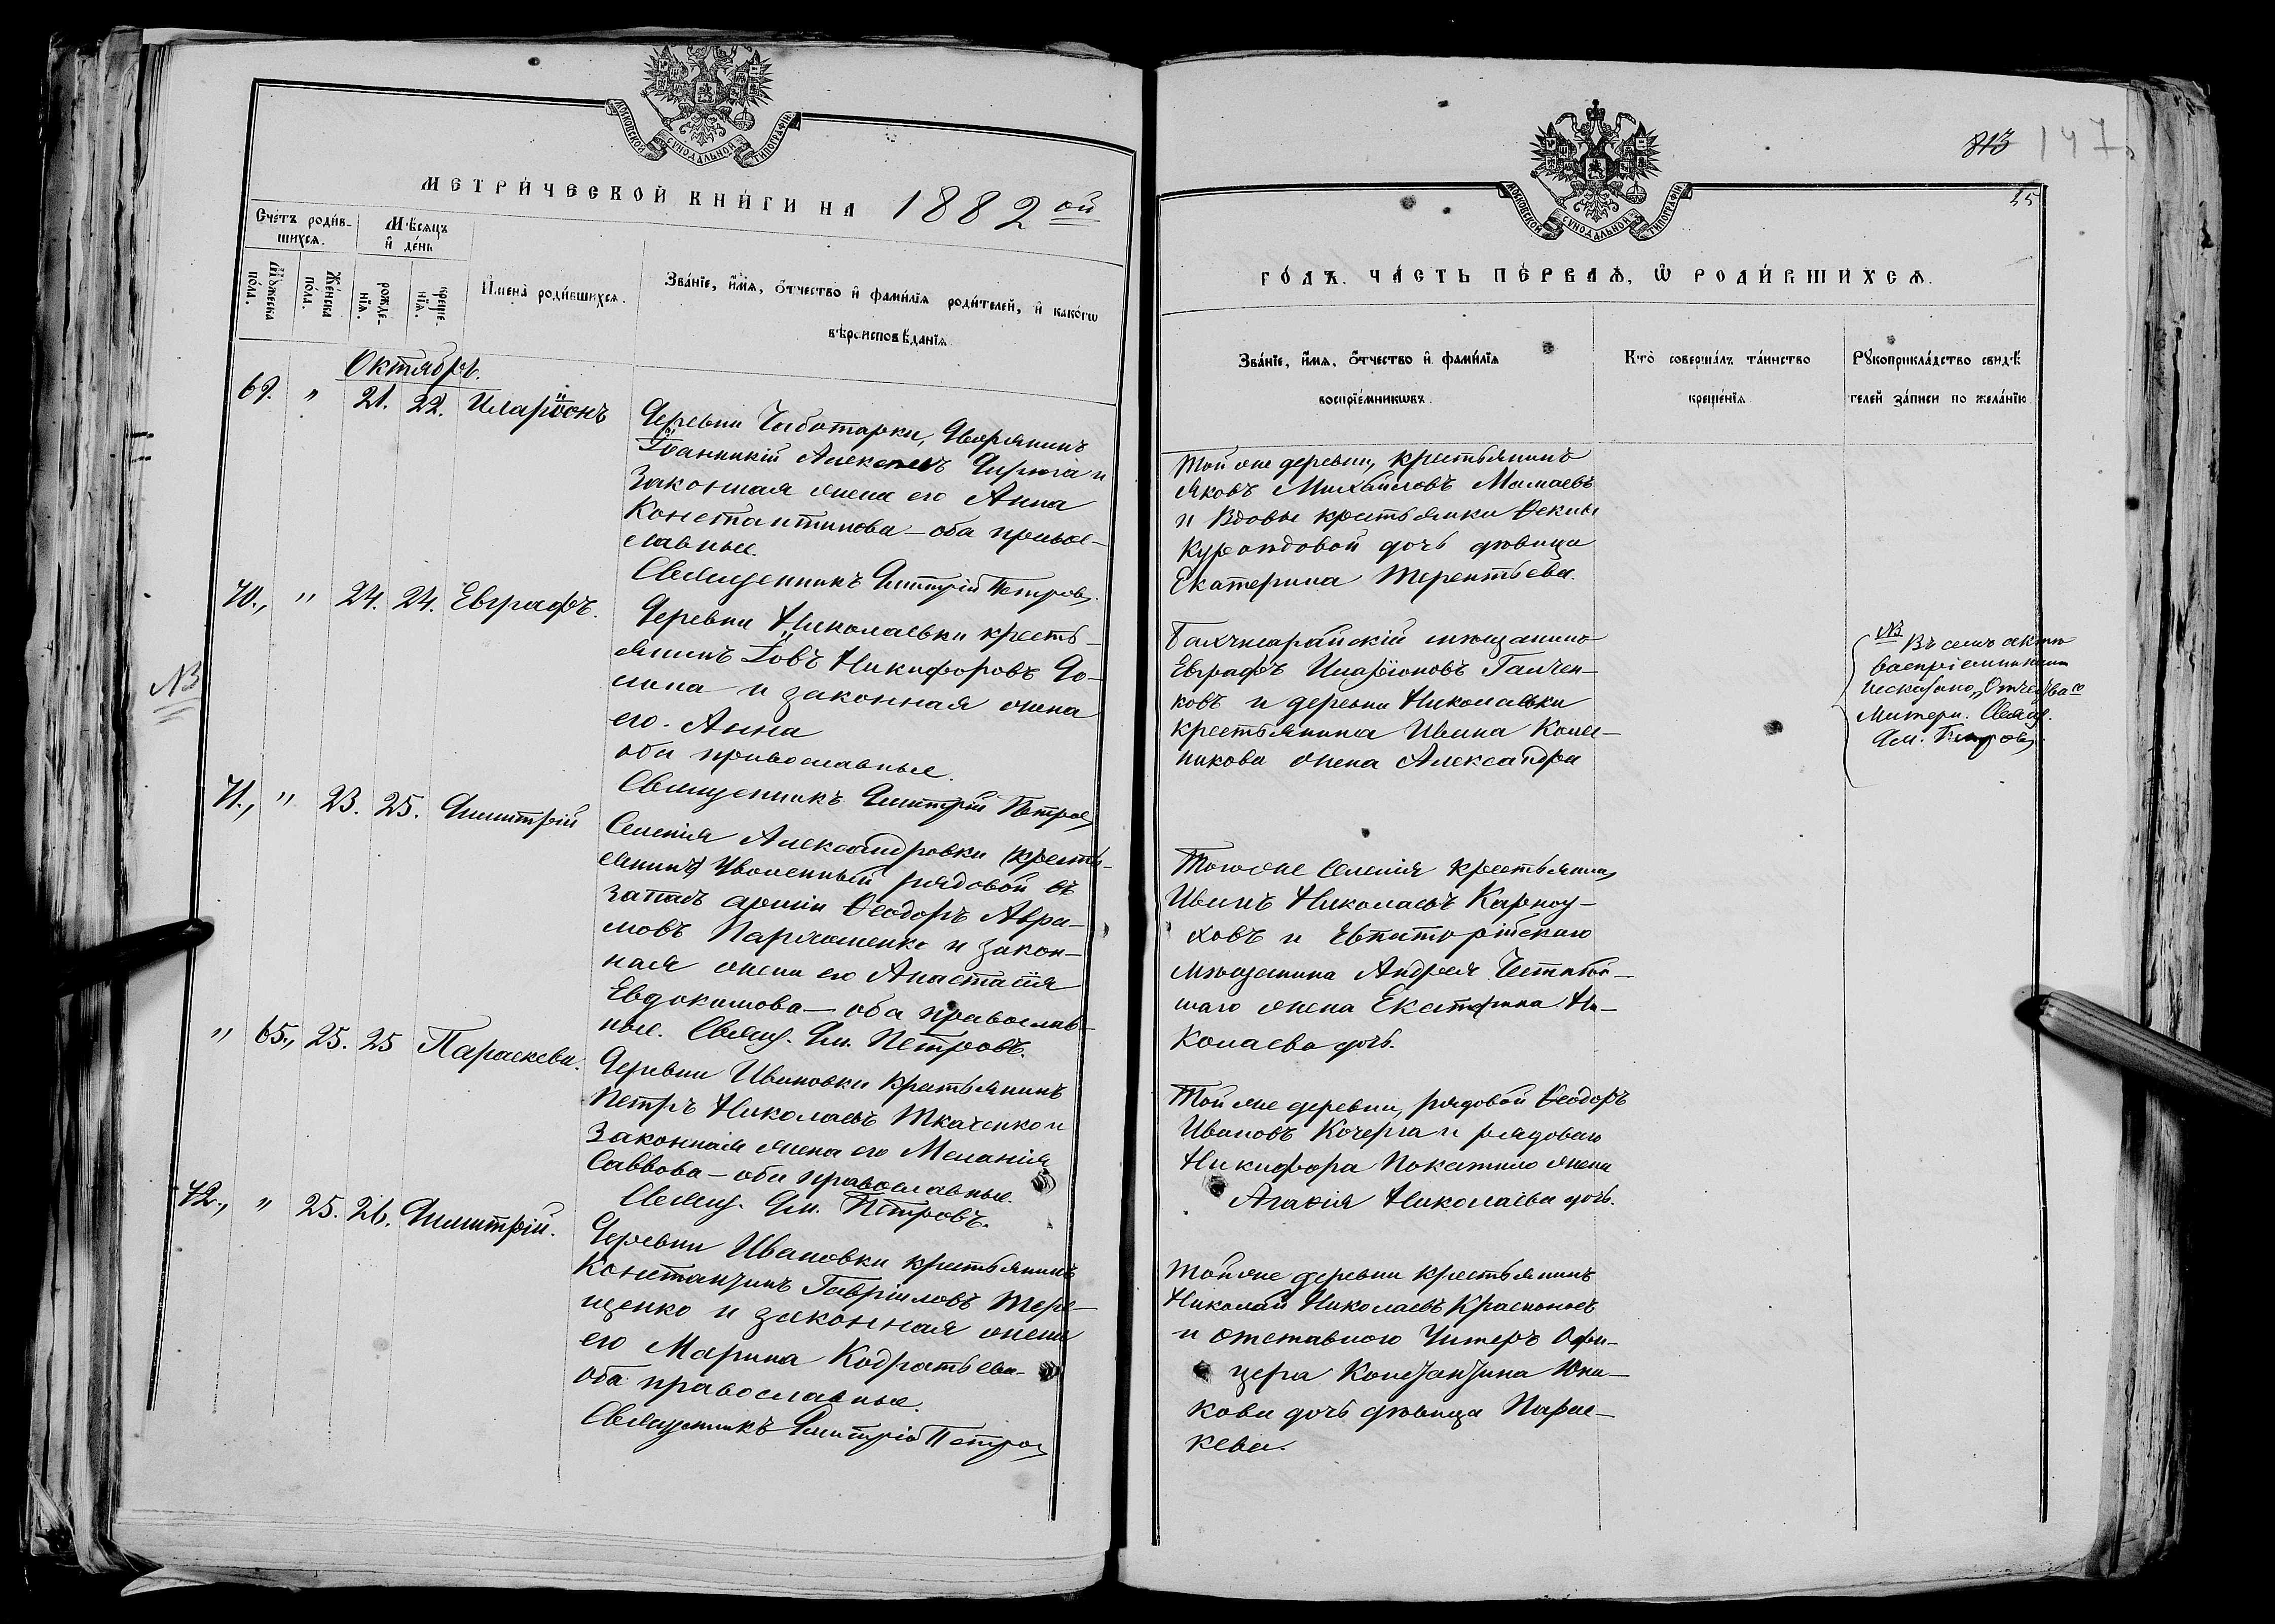 МОСКОВСКОЙ СУНОДАЛЬНОЙ ТИПОГРАФІИ
МЕТРИ́ЧЕСКОЙ КНИ́ГИ НА 1882 ой
Сче́тъ роди́в-
шихсѧ.
Мѣ́сѧцъ
и҆ де́нь
Мꙋ́жеска
по́ла.
Же́нска
по́ла.
рожде-
нїѧ.
креще-
нїѧ.
И҆мена̀ роди́вшихсѧ.
Зва́нїе, и҆́мѧ, ѻ҆́тчество и҆ фами́лїѧ роди́телей, и҆ како́гѡ
вѣроисповѣ́данїѧ
Октябрь.
69. " 21. 22. Иларіонъ
Деревни Чоботарки, Дворянинъ
Іоанникій Алексѣевъ и
законная жена его Анна
Константинова – оба право-
славные.
Священникъ Димитрій Петровъ.
70., " 24. 24. Евграфъ.
Деревни Николаевки кресть-
янинъ Іовъ Никифоровъ До-
лина и законная жена
его Анна
оба православные.
Священникъ Димитрій Петровъ
NB
71., " 23. 25. Димитрій
Селенія Александровки кресть-
янинъ Уволенный рядовой въ
запасъ арміи Ѳеодоръ Авра-
мовъ Пархоменко и закон-
ная жена его Анастасія
Евдокимова – оба православ-
ные. Свящ. Дм. Петровъ.
" 65., 25. 25 Параскева.
Деревни Ивановки крестьянинъ
Петръ Николаевъ Ткаченко и
законная жена его Меланія
Саввова – оба православные.
Свящ. Дм. Петровъ.
72., " 25. 26. Димитрій.
Деревни Ивановки крестьянинъ
Константинъ Гавріиловъ Тере-
щенко и законная жена
его Марина Кодратьева-
оба православные.
Священникъ Димитрій Петровъ
813 147
МОСКОВСКОЙ СУНОДАЛЬНОЙ ТИПОГРАФІИ
ГО́ДЪ. ЧА́СТЬ ПЕ́РВАѦ, Ѡ҆ РОДИ́ВШИХСѦ.
Зва́нїе, и҆́мѧ, ѻ҆́тчество и҆ фами́лїѧ
воспрїе́мникѡвъ.
Кто̀ соверша́лъ та́инство
креще́нїѧ
Рꙋкоприкла́дство свидѣ́
телей за́писи по жела́нїю
Той же деревни, крестьянинъ
Яковъ Михайловъ Мамаевъ
и Вдовы крестьянки Ѳеклы
дочь дѣвица
Екатерина Терентьева.
Бахчисарайскій мѣщанинъ
Евграфъ Иларіоновъ Галчен-
ковъ и деревни Николаевки
крестьянина Ивана Колес-
никова жена Александра
NB Въ семъ актѣ
воспріемницы
Отчества
Матери. Свящ.
Дм. Петровъ
Того же селенія крестьянинъ
Иванъ Николаевъ Карноу-
ховъ и Евпаторійскаго
мѣщанина Андрея
жена Екатерина Ни-
колаева дочь.
Той же деревни, рядовой Ѳеодоръ
Ивановъ Кочерга и рядоваго
Никифора Покатило жена
Агафія Николаева дочь.
Той же деревни крестьянинъ
Николай Николаевъ Красноносъ
и отставного Унтеръ Офи-
цера Константина Юна-
кова дочь дѣвица Парас-
кева.